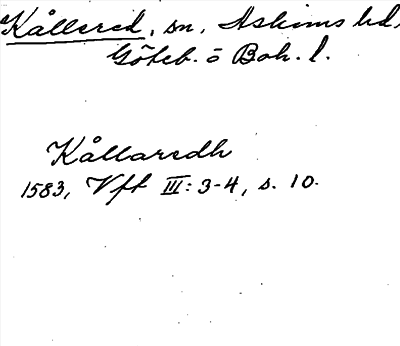 Kållered, sn, Askims hd,
Göteb. o Boh. l.
Kållaredh
1583, Vft III: 3-4, s. 10.